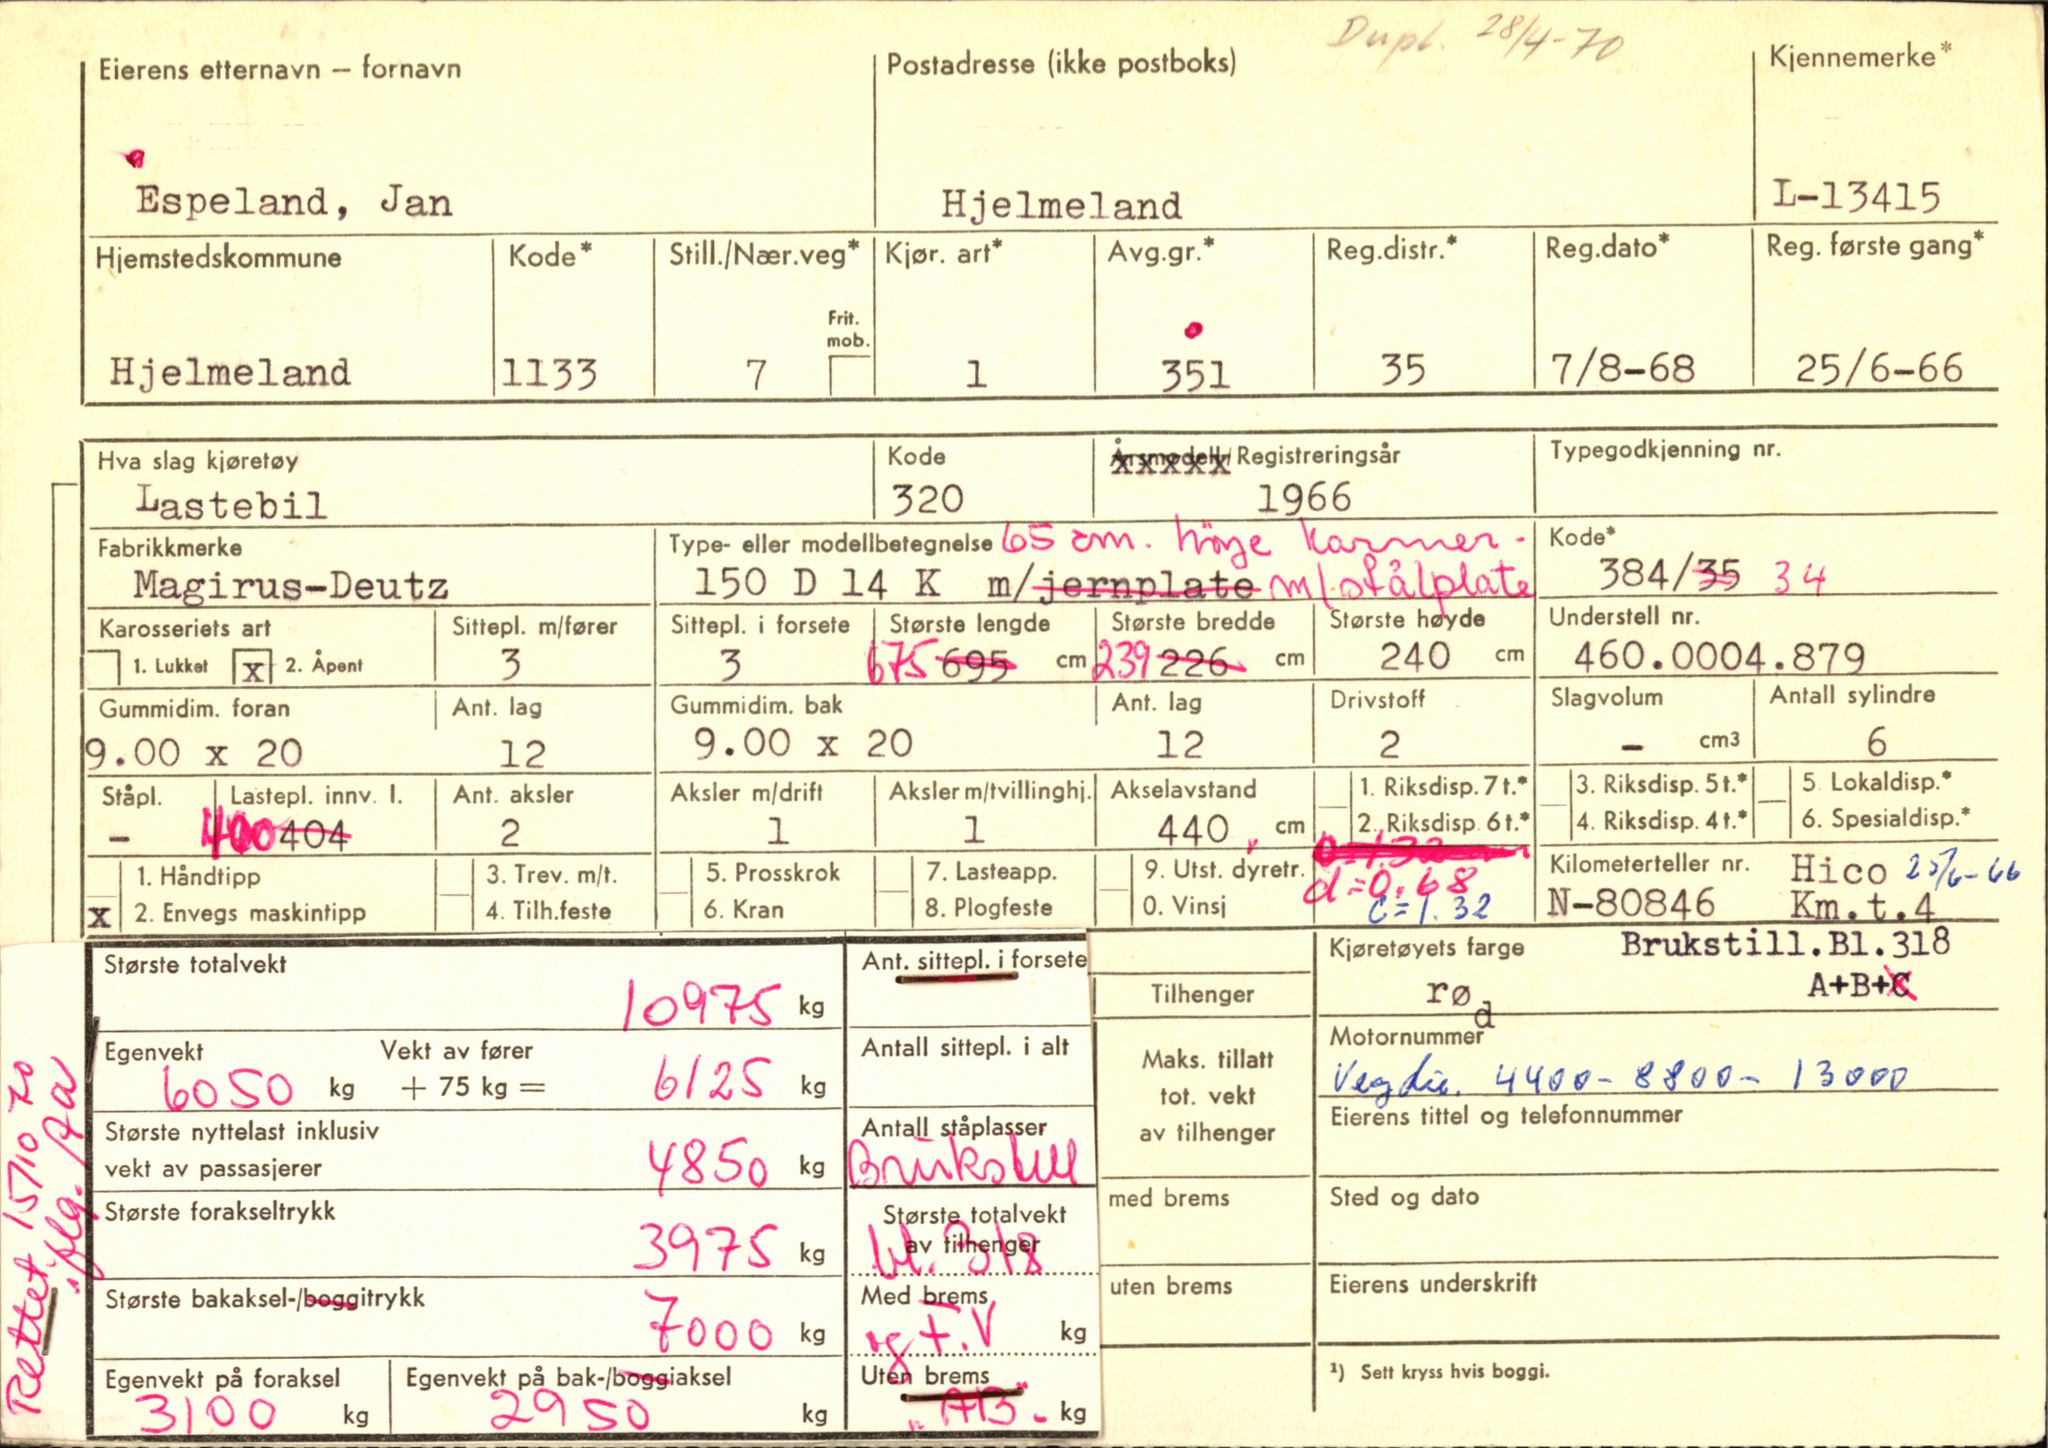 Dupl. 28/4-70
Eierens etternavn – fornavn
Postadresse (ikke postboks)
Kjennemerke*
Espeland, Jan
Hjelmeland
L-13415
Hjemstedskommune Kode* Still./Nær.veg* Kjør. art* Avg.gr.* Reg.distr.* Reg.dato* Reg. første gang*
Frit.
mob.
Hjelmeland 1133 7 1 351 35 7/8-68 25/6-66
Hva slag kjøretøy Kode Årsmodell/Registreringsår Typegodkjenning nr.
Lastebil 320 1966
Fabrikkmerke Type- eller modellbetegnelse 65 cm. høye karmer- Kode*
Magirus-Deutz 150 D 14 K m/jernplate m/stålplate 384/35 34
Karosseriets art Sittepl. m/fører Sittepl. i forsete Største lengde Største bredde Største høyde Understell nr.
1. Lukket x 2. Åpent 3 3 675 695 cm 239 226 cm 240 cm 460.0004.879
Gummidim. foran Ant. lag Gummidim. bak Ant. lag Drivstoff Slagvolum Antall sylindre
9.00 x 20 12 9.00 x 20 12 2 – cm3 6
Ståpl. Lastepl. innv. l. Ant. aksler Aksler m/drift Aksler m/tvillinghj. Akselavstand 1. Riksdisp. 7 t.* 3. Riksdisp. 5 t.* 5. Lokaldisp.*
– 400 404 2 1 1 440 cm 2. Riksdisp. 6 t.* 4. Riksdisp. 4 t.* 6. Spesialdisp.*
1. Håndtipp 3. Trev. m/t. 5. Prosskrok 7. Lasteapp. 9. Utst. dyretr. d=0.68 Kilometerteller nr. Hico 25/6-66
x 2. Envegs maskintipp 4. Tilh.feste 6. Kran 8. Plogfeste 0. Vinsj c=1.32 N-80846 Km.t.4
Største totalvekt
10975 kg
Ant. sittepl. i forsete
Tilhenger
Kjøretøyets farge Brukstill.Bl.318
rød A+B+C
Egenvekt Vekt av fører
6050 kg + 75 kg = 6125 kg
Antall sittepl. i alt
Maks. tillatt
tot. vekt
av tilhenger
Motornummer
Vegdir. 4400-8800-13000
Eierens tittel og telefonnummer
Største nyttelast inklusiv
vekt av passasjerer 4850 kg
Antall ståplasser
Brukstill
Største forakseltrykk
3975 kg
Største totalvekt
av tilhenger
bl. 318
med brems
Sted og dato
Største bakaksel-/boggitrykk
7000 kg
Med brems
og T.V kg
uten brems
Eierens underskrift
Egenvekt på foraksel Egenvekt på bak-/boggiaksel
3100 kg 2950 kg
Uten brems
kg
¹) Sett kryss hvis boggi.
Rettet 15/10 70